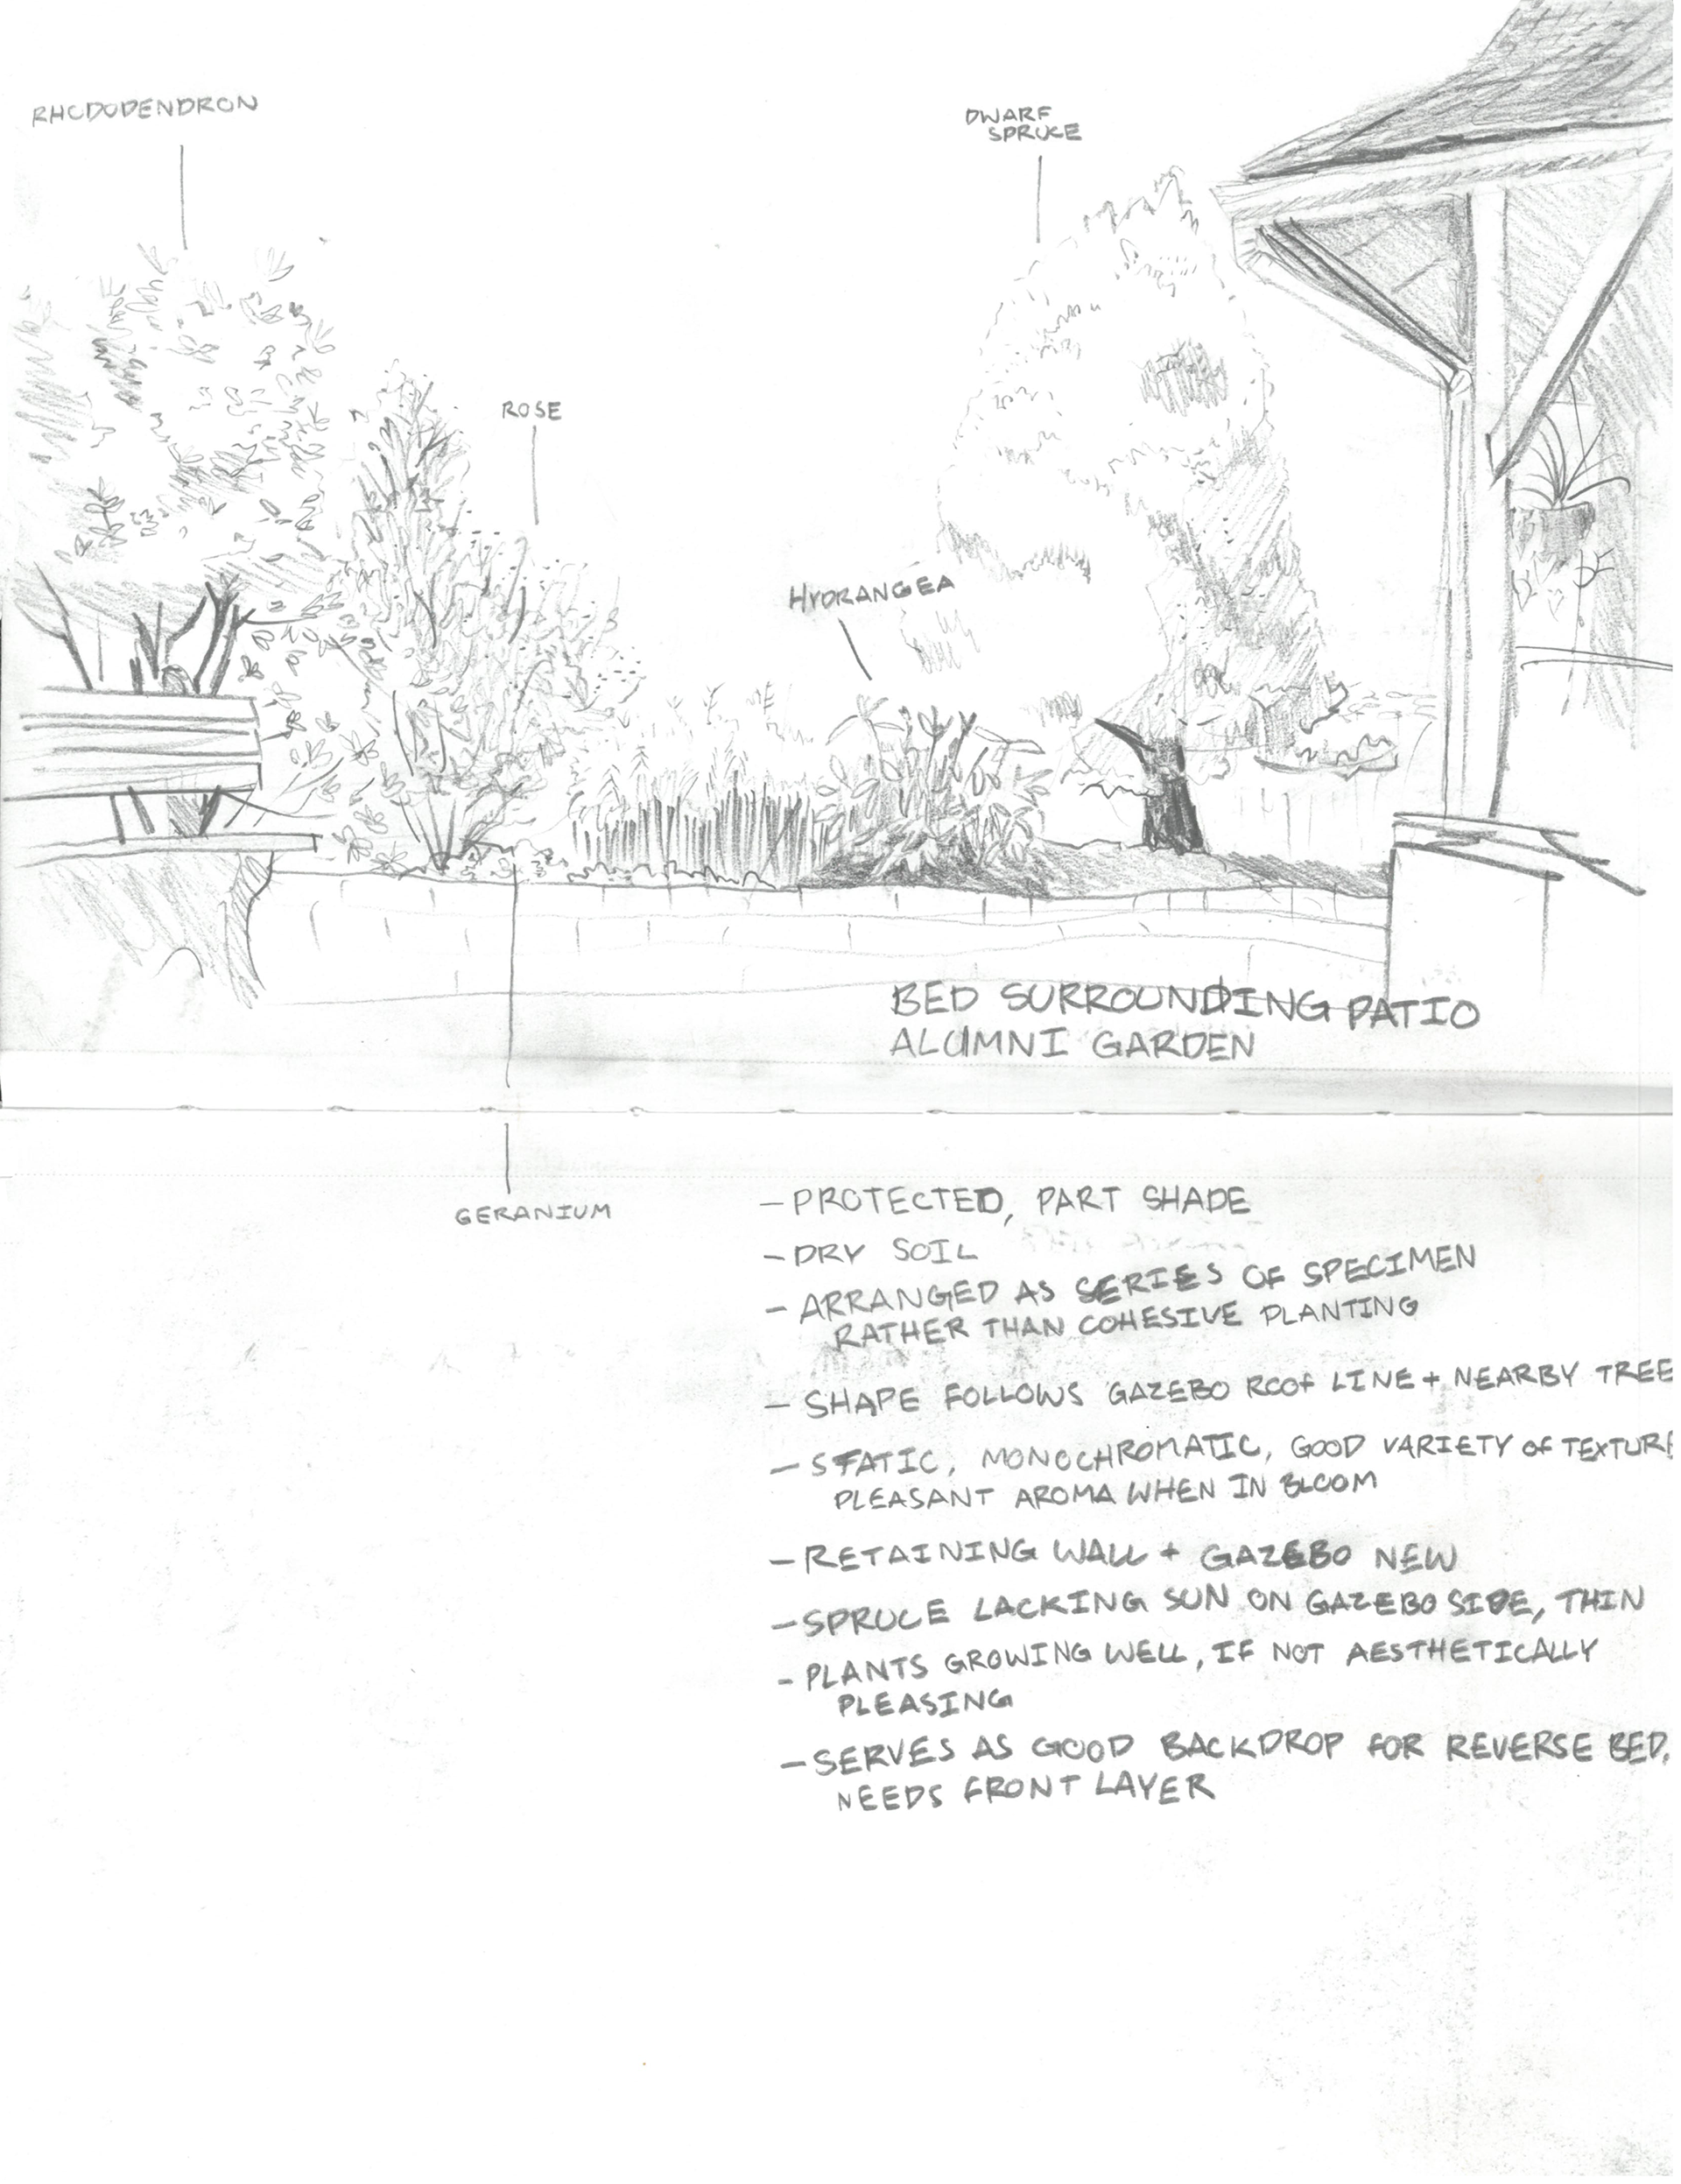 RHODODENDRON
DWARF
SPRUCE
ROSE
HYDRANGEA
BED SURROUNDING PATIO
ALUMNI GARDEN
GERANIUM
- PROTECTED, PART SHADE
- DRY SOIL
- ARRANGED AS SERIES OF SPECIMEN
RATHER THAN COHESIVE PLANTING
- SHAPE FOLLOWS GAZEBO ROOF LINE + NEARBY TREE
- STATIC, MONOCHROMATIC, GOOD VARIETY OF TEXTURE
PLEASANT AROMA WHEN IN BLOOM
- RETAINING WALL + GAZEBO NEW
- SPRUCE LACKING SUN ON GAZEBO SIDE, THIN
- PLANTS GROWING WELL, IF NOT AESTHETICALLY
PLEASING
- SERVES AS GOOD BACKDROP FOR REVERSE BED,
NEEDS FRONT LAYER